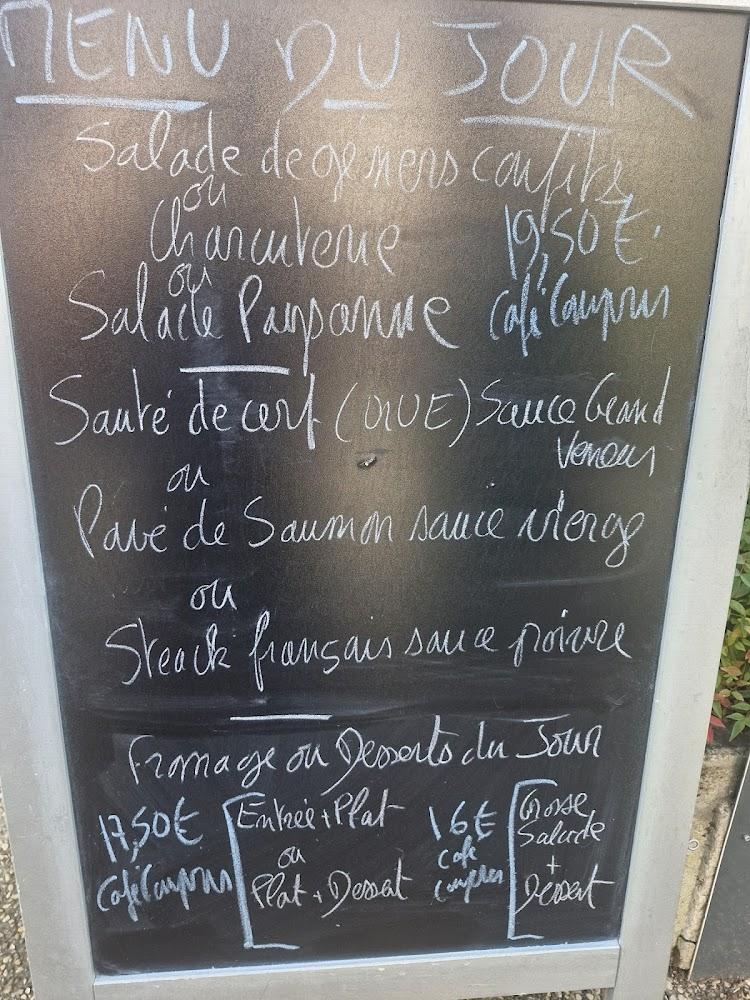 MENU DU JOUR
Salade de gésiers confits
ou
Charcuterie 19,50€.
ou
Salade Paysanne Café Compris
Sauté de cerf (OIUE) Sauce Grand
Veneur
ou
Pavé de Saumon sauce vierge
ou
Steack français sauce poivre
Fromage ou Desserts du Jour
17,50€
Café Compris
Entrée + Plat
ou
Plat + Dessert
16€
café
compris
Grosse
Salade
+
Dessert